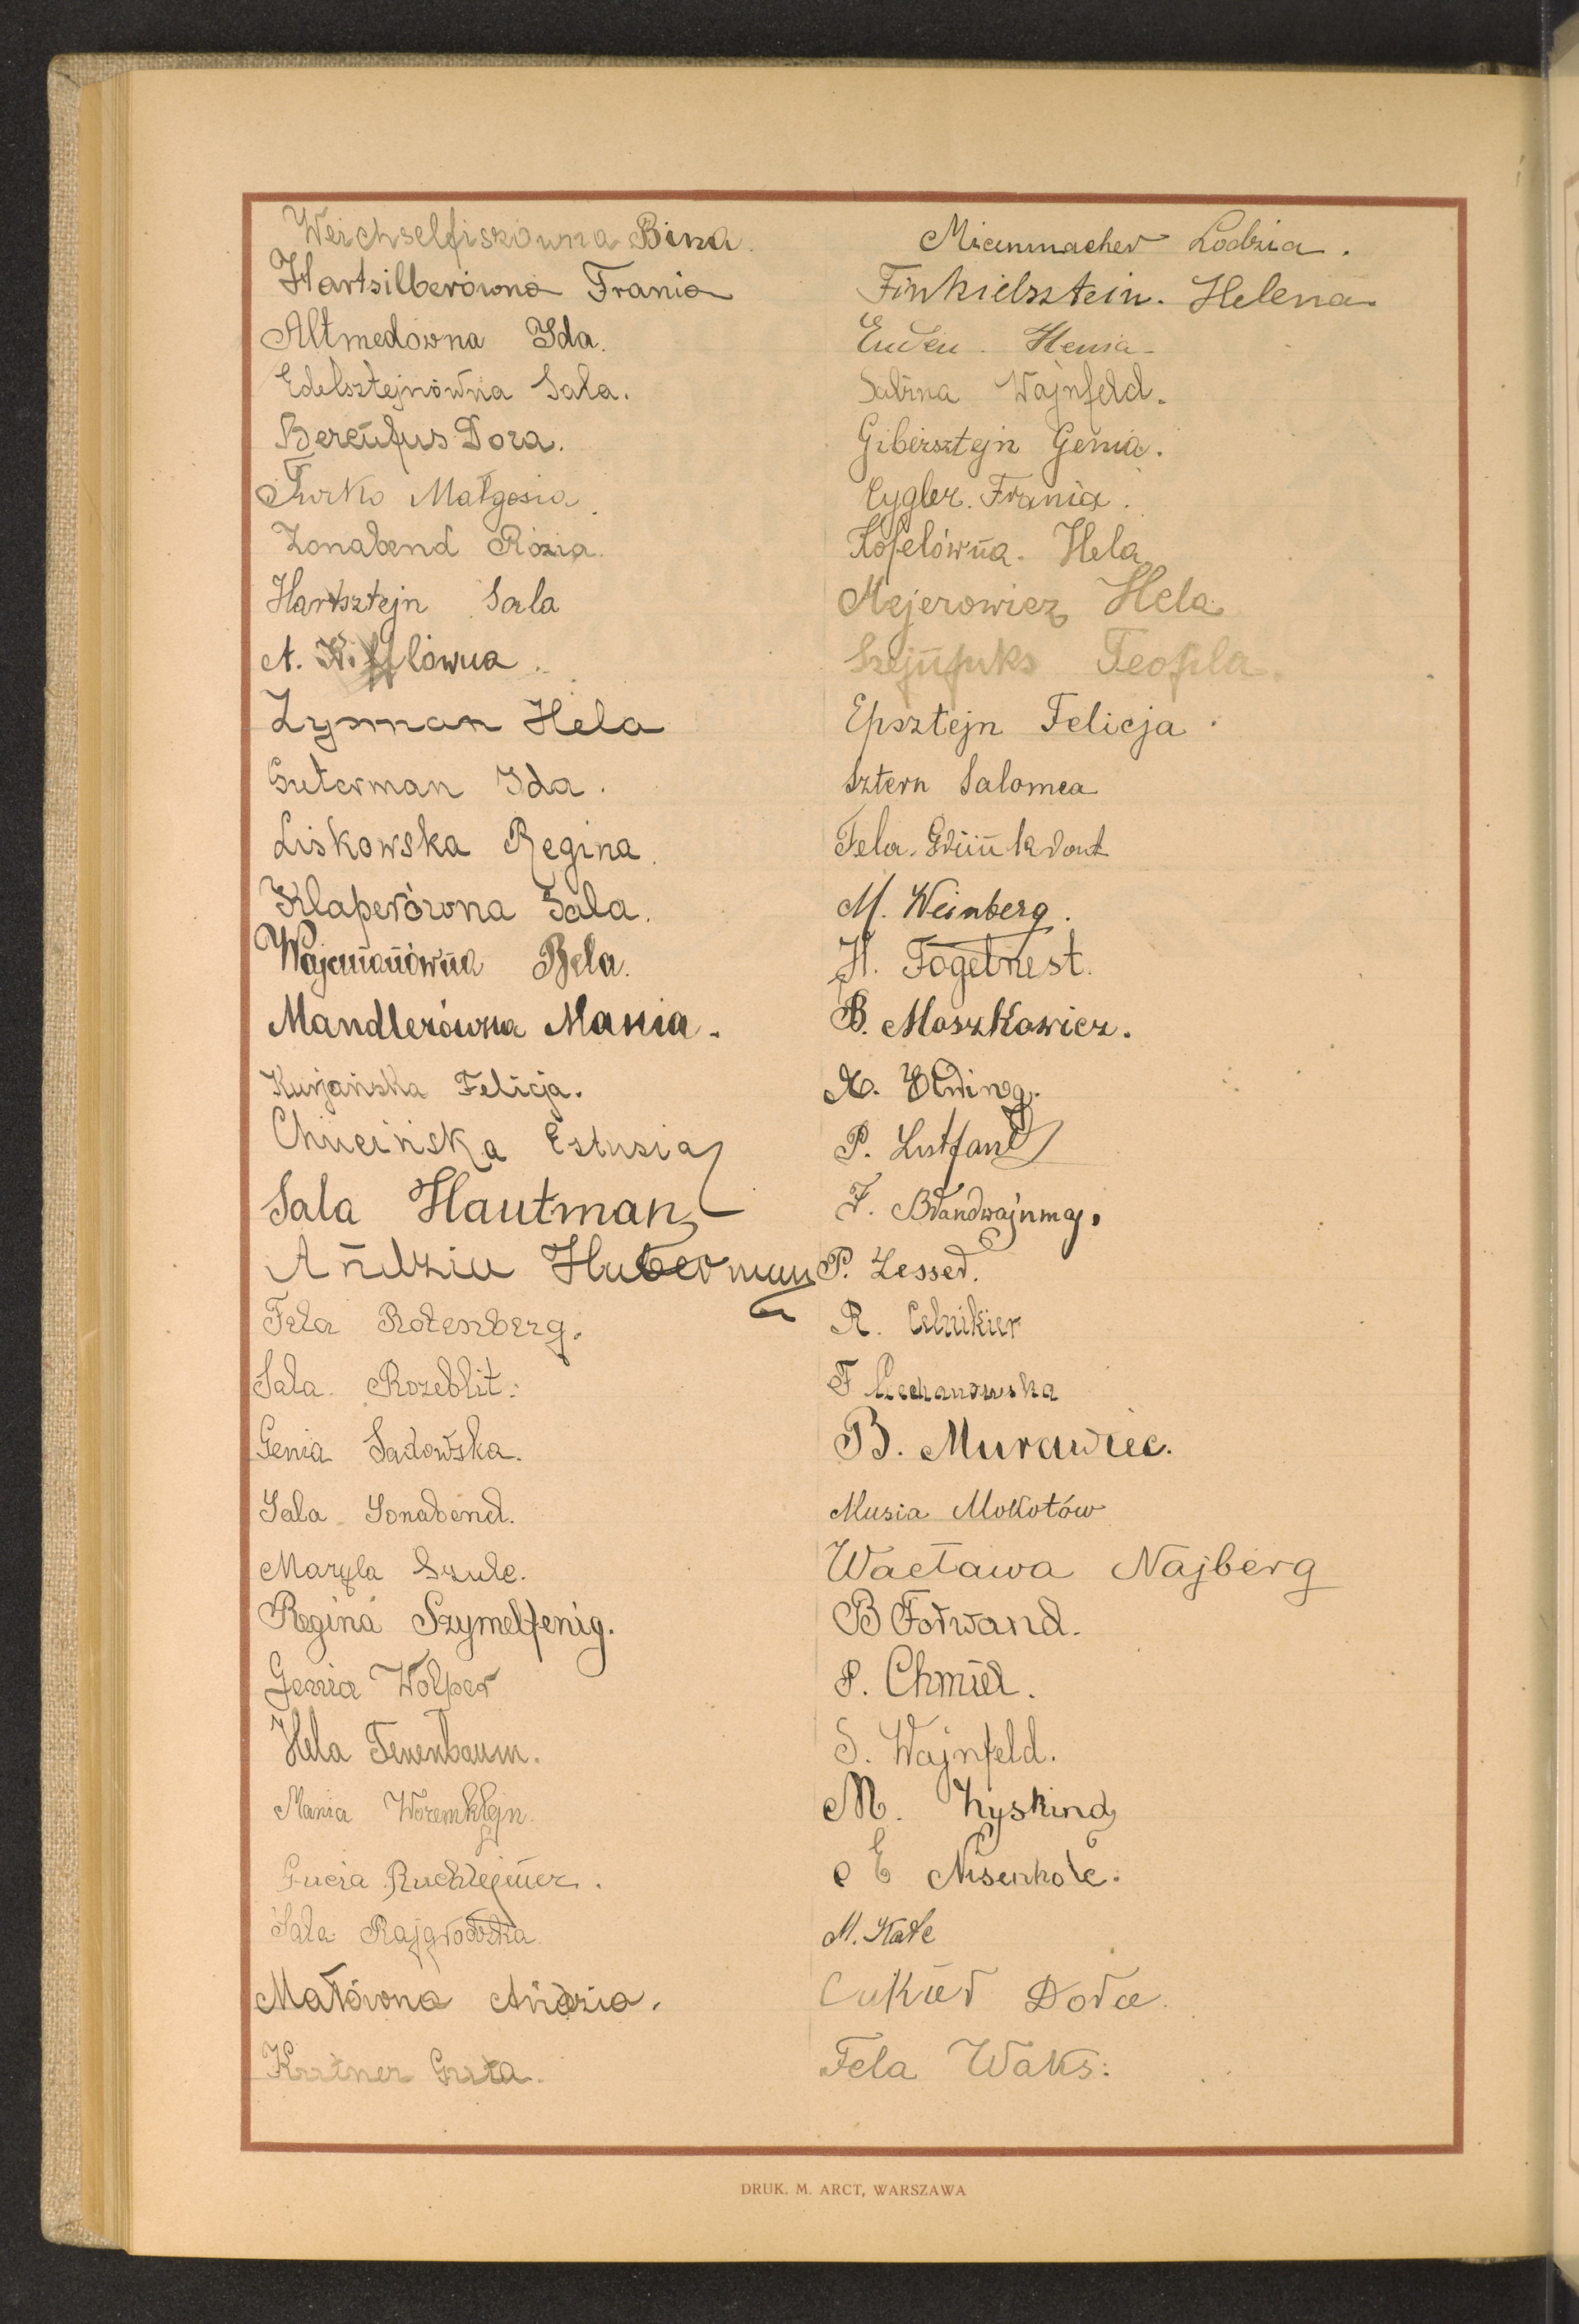 Weichselfiszówna Bina.
Hartsilberówna Frania
Altmedówna Ida.
Edelsztejnówna Sala.
Bercufus Dora.
Turko Małgosia.
Zonabend Rózia.
Hartsztejn Sala
A.
Zysman Hela
Guterman Ida.
Liskowska Regina.
Klaperówna Sala.
Wajcmanówna Bela.
Mandlerówna Mania.
Kurjańska Felicja.
Chucińska Estusia
Sala Hautman
Andzia Huberman
Fela Rotenberg.
Sala Rozeblit.
Genia Sadowska.
Sala Sonabend.
Maryla Szulc.
Regina Szymelfenig.
Genia Wolper
Hela Tenenbaum.
Mania Woremklejn.
Gucia Ruchlejmer.
Sala Rajgrodzka.
Małówna Andzia.
Kutner Guta.
Mieinmacher Lodzia.
Finkielsztein. Helena.
Henia
Sabina Wajnfeld.
Gibersztejn Genia.
Cygler. Frania.
Kopelówna. Hela
Mejerowicz Hela
Szejnfuks Teofila.
Epsztejn Felicja.
Sztern Salomea
Fela. Grünkraut
M. Weinberg.
H. Fogelnest.
B. Moszkowicz.
P. Lustfand
F. Brandwajnmg.
P. Lesser.
R. Celnikier
F Ciechanowska
B. Murawiec.
Musia Mokotów
Wacława Najberg
B Forwand.
P. Chmiel.
S. Wajnfeld.
M. Zyskind
E Nisenholc.
M. Katc
Cukier Dora.
Fela Waks.
DRUK. M. ARCT, WARSZAWA